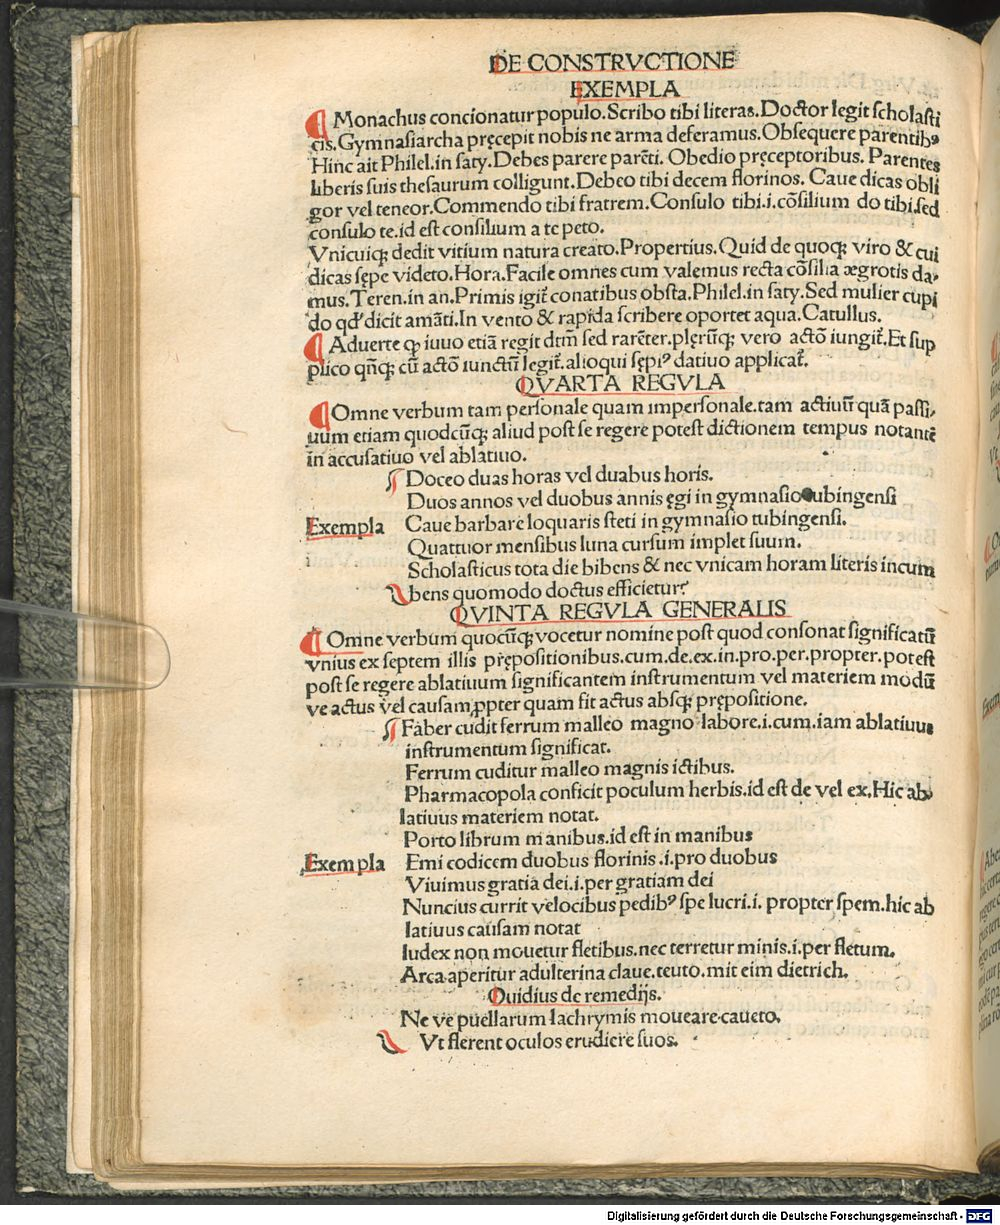 DE CONSTRVCTIONE
EXEMPLA
¶ Monachus concionatur populo.Scribo tibi literas.Doctor legit scholasti
cis.Gymnasiarcha pręcepit nobis ne arma deferamus.Obsequere parentibꝰ
Hinc ait Philel.in saty.Debes parere parēti. Obedio pręceptoribus. Parentes
liberis suis thesaurum colligunt.Debeo tibi decem florinos. Caue dicas obli
gor vel teneor.Commendo tibi fratrem.Consulo tibi.i.cōsilium do tibi.sed
consulo te.id est consilium a te peto.
Vnicuiqꝫ dedit vitium natura creato.Propertius.Quid de quoqꝫ viro & cui
dicas sępe videto.Hora.Facile omnes cum valemus recta cōsilia ægrotis da-
mus.Teren.in an.Primis igit̄ conatibus obsta.Philel.in saty.Sed mulier cupi
do qd' dicit amāti.In vento & rapida scribere oportet aqua.Catullus.
¶ Aduerte qꝫ iuuo etiā regit dt̄m sed rarēter.plęrūqꝫ vero actō iungit̄.Et sup
plico qn̄qꝫ cū actō iunctū legit̄.alioqui sępiꝰ datiuo applicat̄.
QVARTA REGVLA
¶ Omne verbum tam personale quam impersonale.tam actiuū quā passi-
uum etiam quodcūqꝫ aliud post se regere potest dictionem tempus notantē
in accusatiuo vel ablatiuo.
Doceo duas horas vel duabus horis.
Duos annos vel duobus annis ęgi in gymnasio tubingensi
Exempla Caue barbare loquaris steti in gymnasio tubingensi.
Quattuor mensibus luna cursum implet suum.
Scholasticus tota die bibens & nec vnicam horam literis incum
bens quomodo doctus efficietur?
QVINTA REGVLA GENERALIS
¶ Omne verbum quocūqꝫ vocetur nomine post quod consonat significatū
vnius ex septem illis prępositionibus.cum.de.ex.in.pro.per.propter.potest
post se regere ablatiuum significantem instrumentum vel materiem modū
ve actus vel causam ꝓpter quam fit actus absqꝫ prępositione.
Faber cudit ferrum malleo magno labore.i.cum.iam ablatiuus
instrumentum significat.
Ferrum cuditur malleo magnis ictibus.
Pharmacopola conficit poculum herbis.id est de vel ex.Hic ab-
latiuus materiem notat.
Porto librum manibus.id est in manibus
Exempla Emi codicem duobus florinis .i.pro duobus
Viuimus gratia dei.i.per gratiam dei
Nuncius currit velocibus pedibꝰ spe lucri.i. propter spem.hic ab
latiuus causam notat
Iudex non mouetur fletibus.nec terretur minis.i.per fletum.
Arca aperitur adulterina claue.teuto.mit eim dietrich.
Ouidius de remedijs.
Ne ve puellarum lachrymis moueare caueto.
Vt flerent oculos erudiere suos.
Digitalisierung gefördert durch die Deutsche Forschungsgemeinschaft - DFG